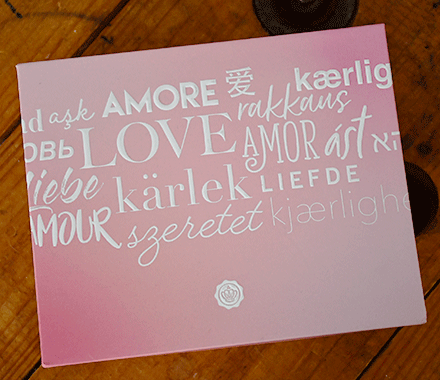 aşk AMORE 爱 kærlig
rakkaus
ОВЬ LOVE AMOR ást
liebe kärlek LIEFDE
AMOUR szeretet kjærlighe